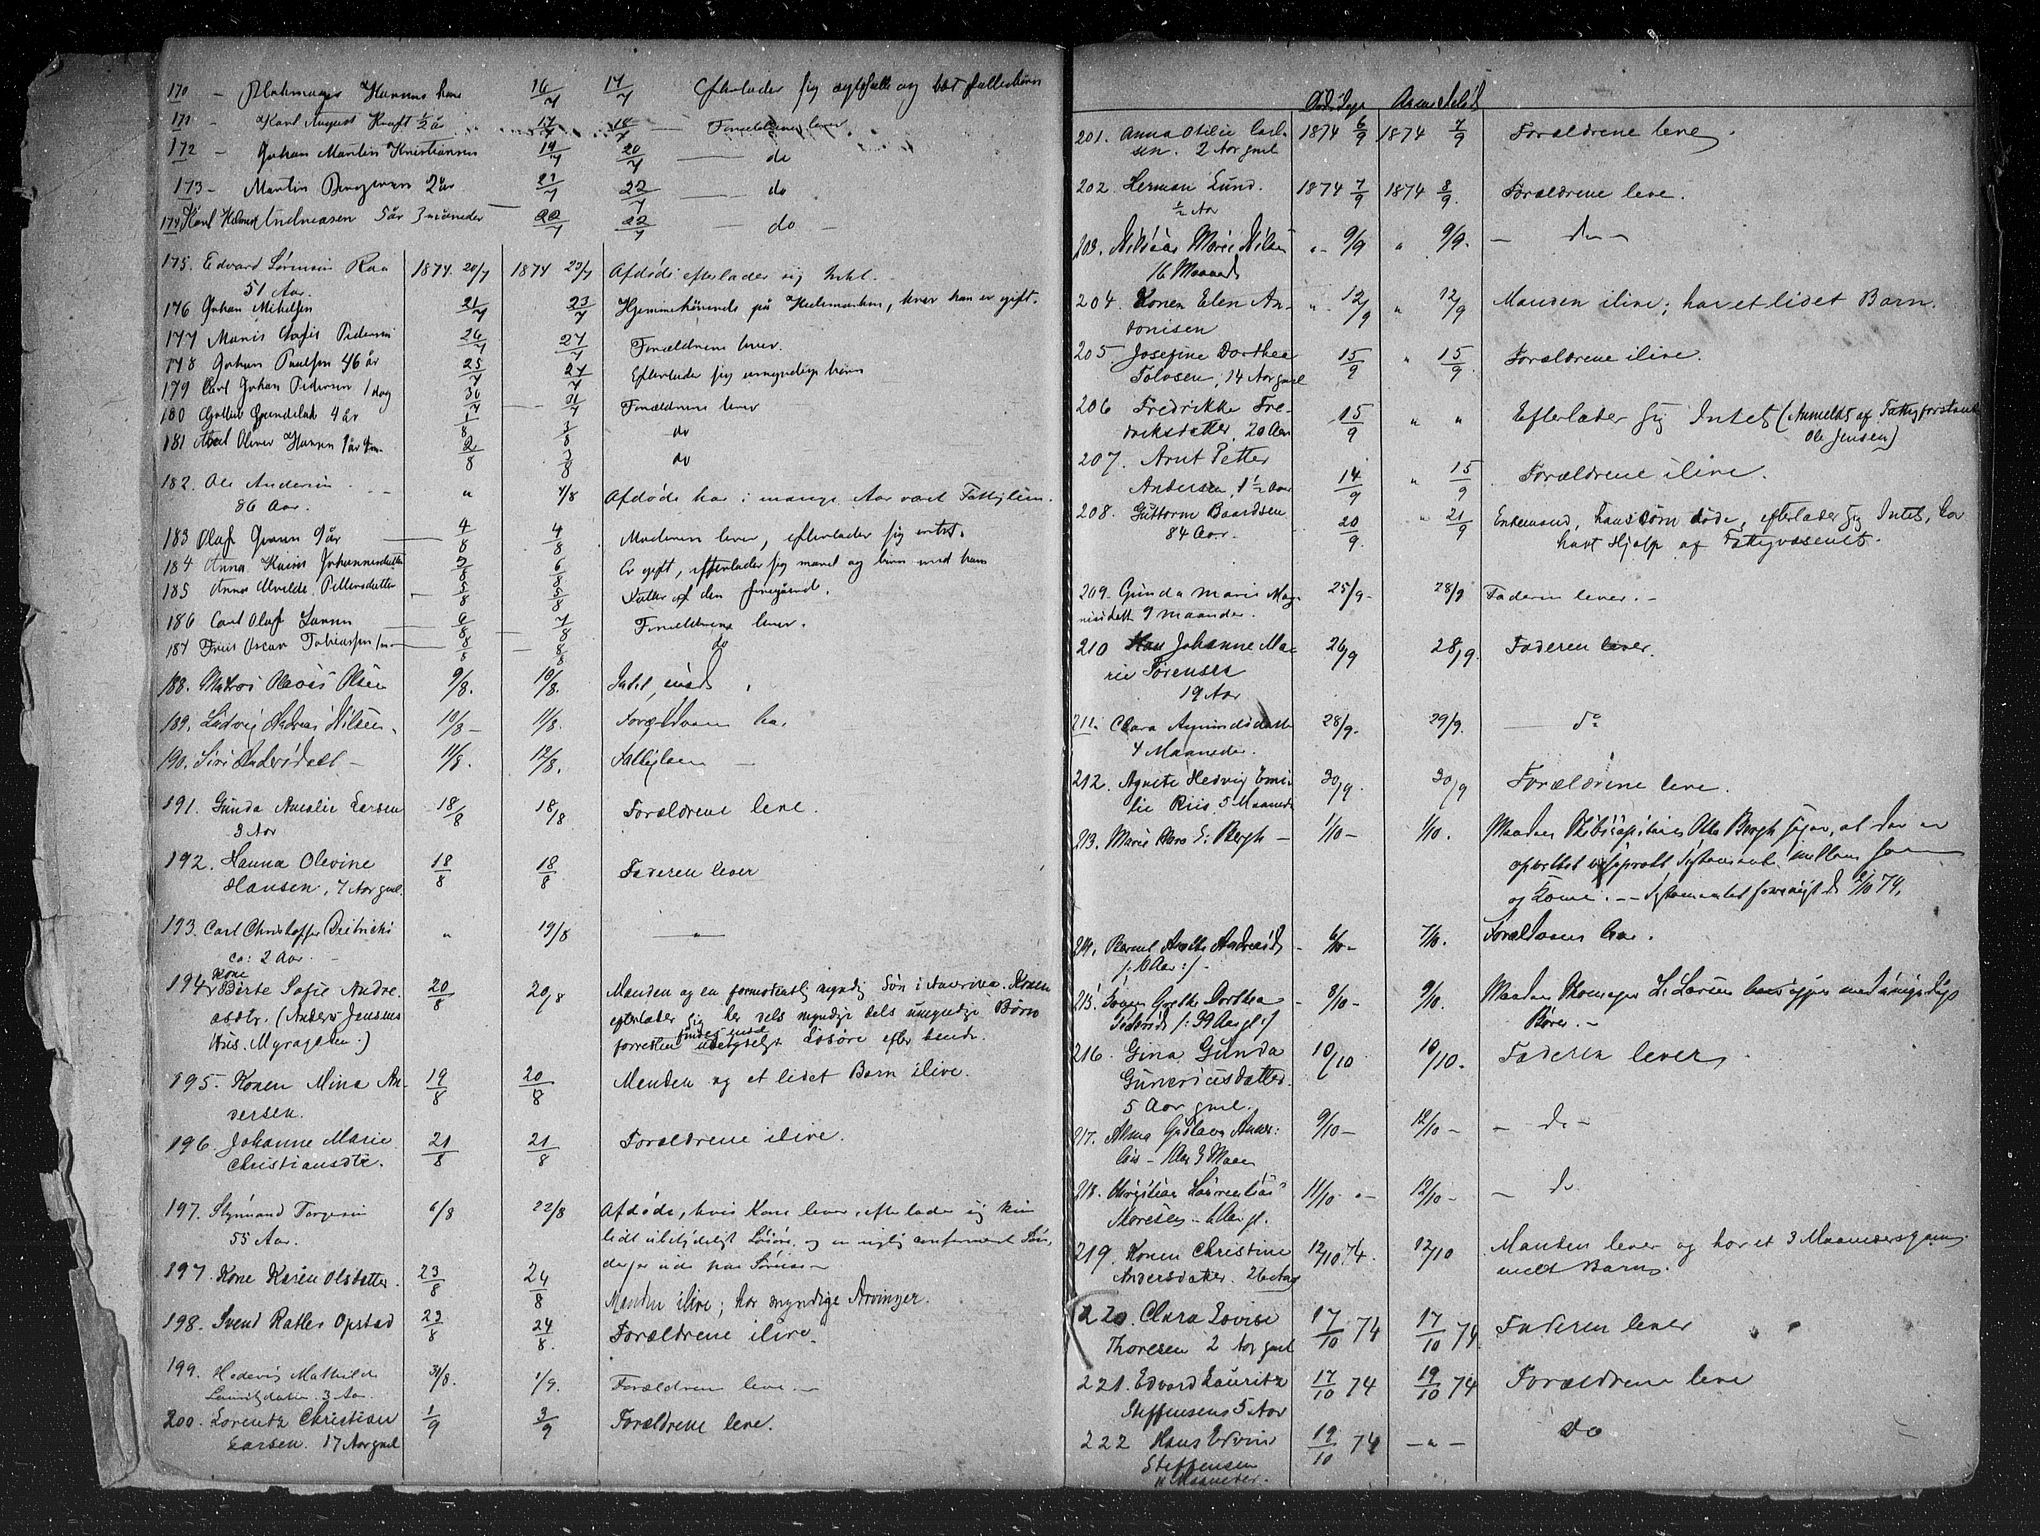 170 - Hansens kone 16/7 17/7 Efterlader sig ægtefælle og
171 - Karl August Kraft ½ år 17/7 18/7 — Forældrene lever
172 - Johan Martin Kristiansen 19/7 20/7 — do
173 - Martin 2 år 21/7 22/7 — do
174 Karl Andreasen 5 år 3 måneder 22/7 22/7 — do -
175. Edvard Sørensen Raa 1874. 20/7 1874 23/7 Afdøde efterlader sig Intet.
51 Aar.
176 Johan Mikelsen 21/7 23/7 Hjemmehørende på Hedemarken, hvor han er gift.
177 Pedersen 26/7 27/7 Forældrene lever.
178 Johan Paulsen 46 år 25/7 27/7 Efterlader sig umyndige børn
179 Carl Johan Pedersen 1 dag 30/7 31/7 Forældrene lever
180 4 år 1/8 3/8 do
181 Oliver Hansen 1 år 2/8 3/8 do
182. Ole Andersen " 4/8 Afdøde har i mange Aar været Fattiglem.
86 Aar.
183 Oluf 9 år 4/8 4/8 Moderen lever, efterlader sig intet.
184 Anna Karin Johannesdatter 5/8 6/8 Er gift, efterlader sig mand og
185 Anna Pettersdatter 5/8 5/8 Datter af den foregående.
186 Carl Oluf 6/8 7/8 Forældrene lever.
187 Oscar Tobiassen 8/8 8/8 do
188. Matros Olaus Olsen 9/8. 10/8. Intet
189. Ludvig Andreas Nilsen. 10/8 - 11/8. Forældrene
190. Siri Andersdatt - 11/8. 12/8. Fattiglem —
191. Gunda Amalie Larsen 18/8 18/8 Forældrene leve.
3 Aar
192. Hanna Olevine 18/8 18/8 Faderen lever
Hansen, 7 Aar gml.
193. Carl Christoffer Deitrichs " 19/8 — " —
ca: 2 Aar. -
194 Kone
Berte Sofie Andre- 20/8 20/8 Manden og en formodentlig myndig Søn i Amerika. Konen
asdtr. (Anders Jensens efterlader sig her dels myndige dels umyndige Børn
Hus. Myragalen.) forresten ubetydeligt Løsøre efter hende.
195. Konen Mina An- 19/8 20/8 Manden og et lidet Barn ilive.
dersen.
196. Johanne Marie 21/8 21/8 Forældrene ilive.
Christiansdtr.
197. Torgersen 6/8 22/8 Afdøde, hvis Kone lever, efterlader sig kun
55 Aar. lidt ubetydeligt Løsøre, og en confirmeret Søn,
der er ude paa Søreise —
197. Kone Karen Olsdatter. 23/8 24/8 Manden ilive; har myndige Arvinger.
198. Svend Opstad 23/8 24/8. Forældrene ilive.
199. Hedevig Mathilde 31/8. 1/9. Forældrene leve. —
Lauritzdatter. 3 Aar.
200. Lorentz Christian 1/9 3/9 Forældrene leve.
Larsen. 17 Aar gml
Dødsdage Anmeldelsd
201. Anna Otilie Carl- 1874 6/9 1874 7/9 Forældrene leve.
sen. 2 Aar gml
202. Herman Lund. 1874 7/9 1874 8/9. Forældrene leve.
½ Aar
203. Marie Nilsen " 9/9 " 9/9. — do —
16 Maaneder
204. Konen Elen An- " 12/9 " 12/9 Manden ilive; har et lidet Barn.
tonisen
205. Josefine Dorthea 15/9 " 15/9. Forældrene ilive.
14 Aar gml
206 Fredrikke Fre- 15/9 " " Efterlader sig Intet (Anmeldt af Fattigforstander
driksdatter, 20 Aar Ole Jensen)
207. Arnt Petter 14/9 " 15/9 Forældrene ilive.
Andersen, 1½ Aar
208. Guttorm Baardsen 20/9. " 21/9 Enkemand, hans Børn døde, efterlader sig Intet, har
84 Aar. havt Hjælp af Fattigvæsenet.
209. Gunda Marie Mag- 25/9 - 28/9 Faderen lever. -
9 Maaneder.
210 Johanne Ma- 26/9 28/9. Faderen lever.
rie Sørensen
19 Aar
211. Clara Asmundsdatter 28/9. 29/9. — do
4 Maaneder.
212. Agnete Hedvig Emi- 30/9. 30/9 Forældrene leve.
lie Riis 5 Maaneder
213. Marie Bergh — 1/10 - 1/10. Manden Skibscaptein Otto Bergh siger, at der er
oprettet Testamente mellem ham
og Kone. — Testamentet forevist d 2/10 74.
214. Andreasd - 6/10 - 7/10. Forældrene leve.
/: 10 Aar :/ -
215. Dorthea - 8/10 - 9/10. Manden L. Larsen med umyndige
/: 39 Aar gl :/ Børn. —
216. Gina Gunda 10/10 10/10. Faderen lever.
Gunerius datter.
5 Aar gml.
217. Alma Gustava Ander- 9/10 — 12/10 — — do —
- 1 Aar 3 Maan
218. Christian Laurentius 11/10. - 12/10 - — do
Thoresen - 1 Aar gl.
219. Konen Christine 12/10 74. 12/10 Manden lever og har et 3 Maaneders gam-
Andersdatter. 26 Aar melt Barn.
220 Clara Lovise 17/10 74 17/10 74. Faderen lever
Thoresen 2 Aar gml
221. Edvard Lauritz 17/10 74 19/10 74 Forældrene leve
Steffensen 5 Aar
222 Hans Edvin 19/10 74 — " — do
Steffensen
11 Maaneder.